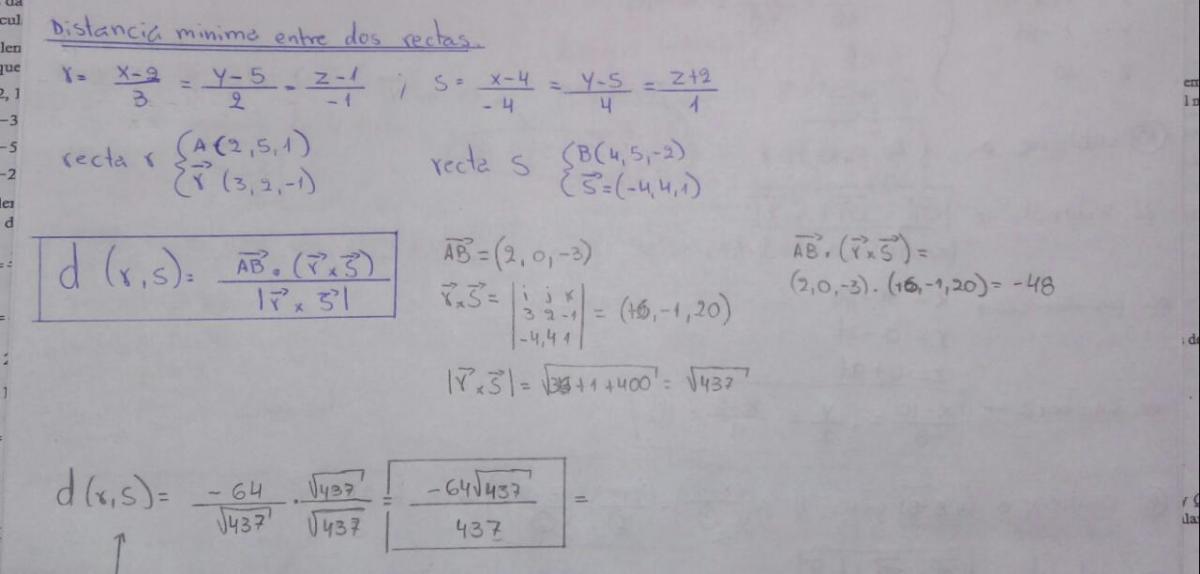 Distancia minima entre dos rectas.
r = x-2/3 = y-5/2 = z-1/-1 ; s = x-4/-4 = y-5/4 = z+2/1
recta r { A(2,5,1) r⃗ (3,2,-1)
recta s { B(4,5,-2) s⃗=(-4,4,1)
d (r,s) = AB⃗ · (r⃗ x s⃗) / |r⃗ x s⃗|
AB⃗ = (2,0,-3)
r⃗ x s⃗ = | i j k 3 2 -1 -4,4 1 | = (+6,-1,20)
|r⃗ x s⃗| = √36+1+400 = √437
AB⃗ · (r⃗ x s⃗) =
(2,0,-3) · (+6,-1,20) = -48
d (r,s) = -64/√437 · √437/√437 = -64√437/437 =